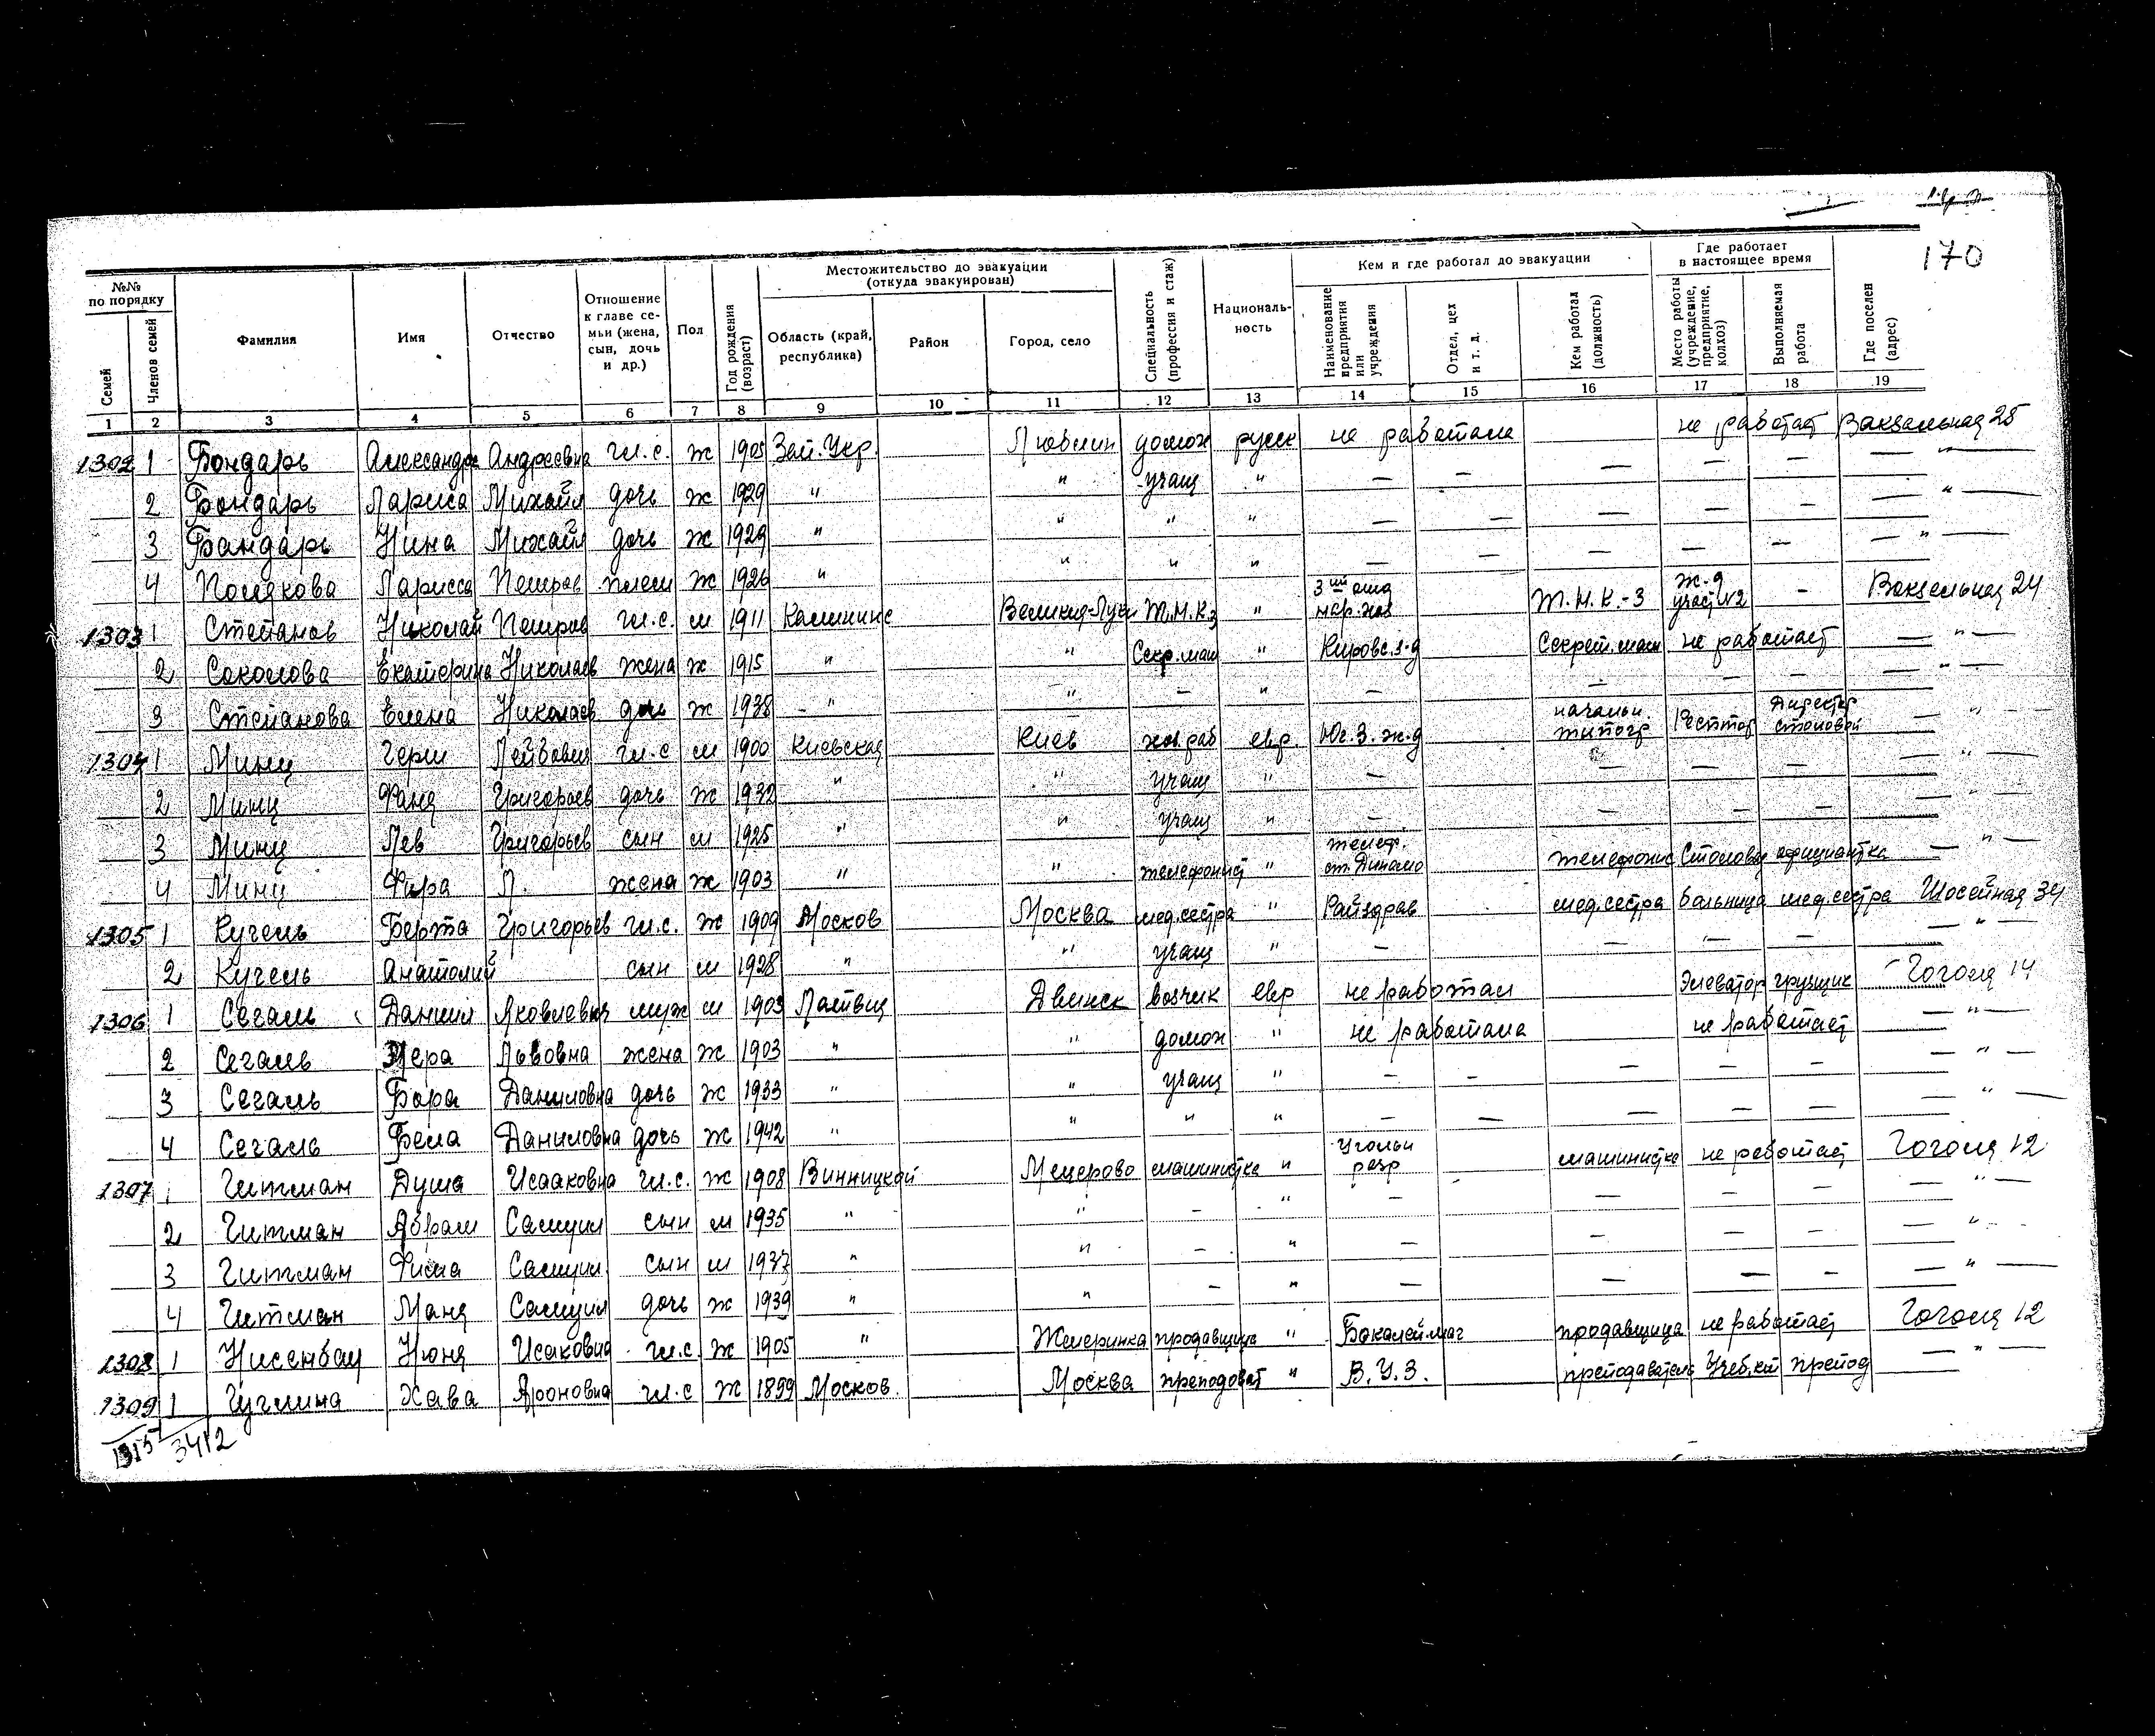 170
№№ по порядку
Семей
Членов семей
Фамилия
Имя
Отчество
Отношение к главе се-
мьи (жена,
сын, дочь
и др.)
Пол
Год рождения
(возраст)
Местожительство до эвакуации
(откуда эвакуирован)
Область (край,
республика)
Район
Город, село
Специальность
(профессия и стаж)
Националь-
ность
Кем и где работал до эвакуации
Наименование
предприятия
или
учреждения
Отдел, цех
и т. д.
Кем работал
(должность)
Где работает
в настоящее время
Место работы
(учреждение,
предприятие,
колхоз)
Выполняемая
работа
Где поселен
(адрес)
1 2 3 4 5 6 7 8 9 10 11 12 13 14 15 16 17 18 19
1302 1 Бондарь Александра Андреевна гл.с. ж 1905 Зап. Укр. Люблин домох русск не работала — не работает Вакзальная 25
2 Бондарь Лариса Михайл дочь ж 1929 " " учащ " — — — — — — " —
3 Бандарь Нина Михайл дочь ж 1929 " " " " — — — — — — " —
4 Полякова Ларисса Петров плем ж 1926 " " " " — — — — — — " —
1303 1 Степанов Николай Петров гл.с. м 1911 Калининс Великия-Луки Т.М.К.З " Т.М.К.-З ж.д участ №2 — Вакзальная 24
2 Соколова Екатерина Николаев жена ж 1915 " " Секр.маш " Кировс.з-д Секрет.маш не работает — " —
3 Степанова Елена Николаев дочь ж 1938 " " — " — — — — — " —
1304 1 Минц Герш Лейбович гл.с м 1900 Киевская Киев хоз.раб евр. Юг.З.ж-д начальн типогр Рестор Директор столовой — " —
2 Минц Фаня Григорьев дочь ж 1932 " " учащ " — — — — — " —
3 Минц Лев Григорьев сын м 1925 " " учащ " — — — — — " —
4 Минц Фира Л. жена ж 1903 " " телефонист " телеф. ст. Динамо телефонис Столовая официантка — " —
1305 1 Кугель Берта Григорьев гл.с. ж 1909 Москов Москва мед.сестра " Райздрав мед.сестра больница мед.сестра Шосейная 34
2 Кугель Анатолий сын м 1928 " " учащ " — — — — — " —
1306 1 Сегаль Даниил Яковлевич муж м 1903 Латвия Двинск возчик евр не работал Элеватор грузщик Гоголя 14
2 Сегаль Львовна жена ж 1903 " " домох " не работала не работает — " —
3 Сегаль Бора Даниловна дочь ж 1933 " " учащ " — — — — — — " —
4 Сегаль Бела Даниловна дочь ж 1942 " " " " — — — — — — " —
1307 1 Гитман Душа Исааковна гл.с. ж 1908 Винницкой машинистка " Угольн разр машинистка не работает Гоголя 12
2 Гитман Абрам Самуил сын м 1935 " " — " — — — — — " —
3 Гитман Фима Самуил. сын м 1937 " " — " — — — — — " —
4 Гитман Маня Самуил дочь ж 1939 " " — " — — — — — " —
1308 1 Нисенбау Нюня Исаковна гл.с ж 1905 " Жмеринка продавщица " Бакалей маг продавщица не работает Гоголя 12
1309 1 Хава Ароновна гл.с ж 1899 Москов. Москва преподоват " В.У.З. преподаватель Учеб.ком препод — " —
1315 3412